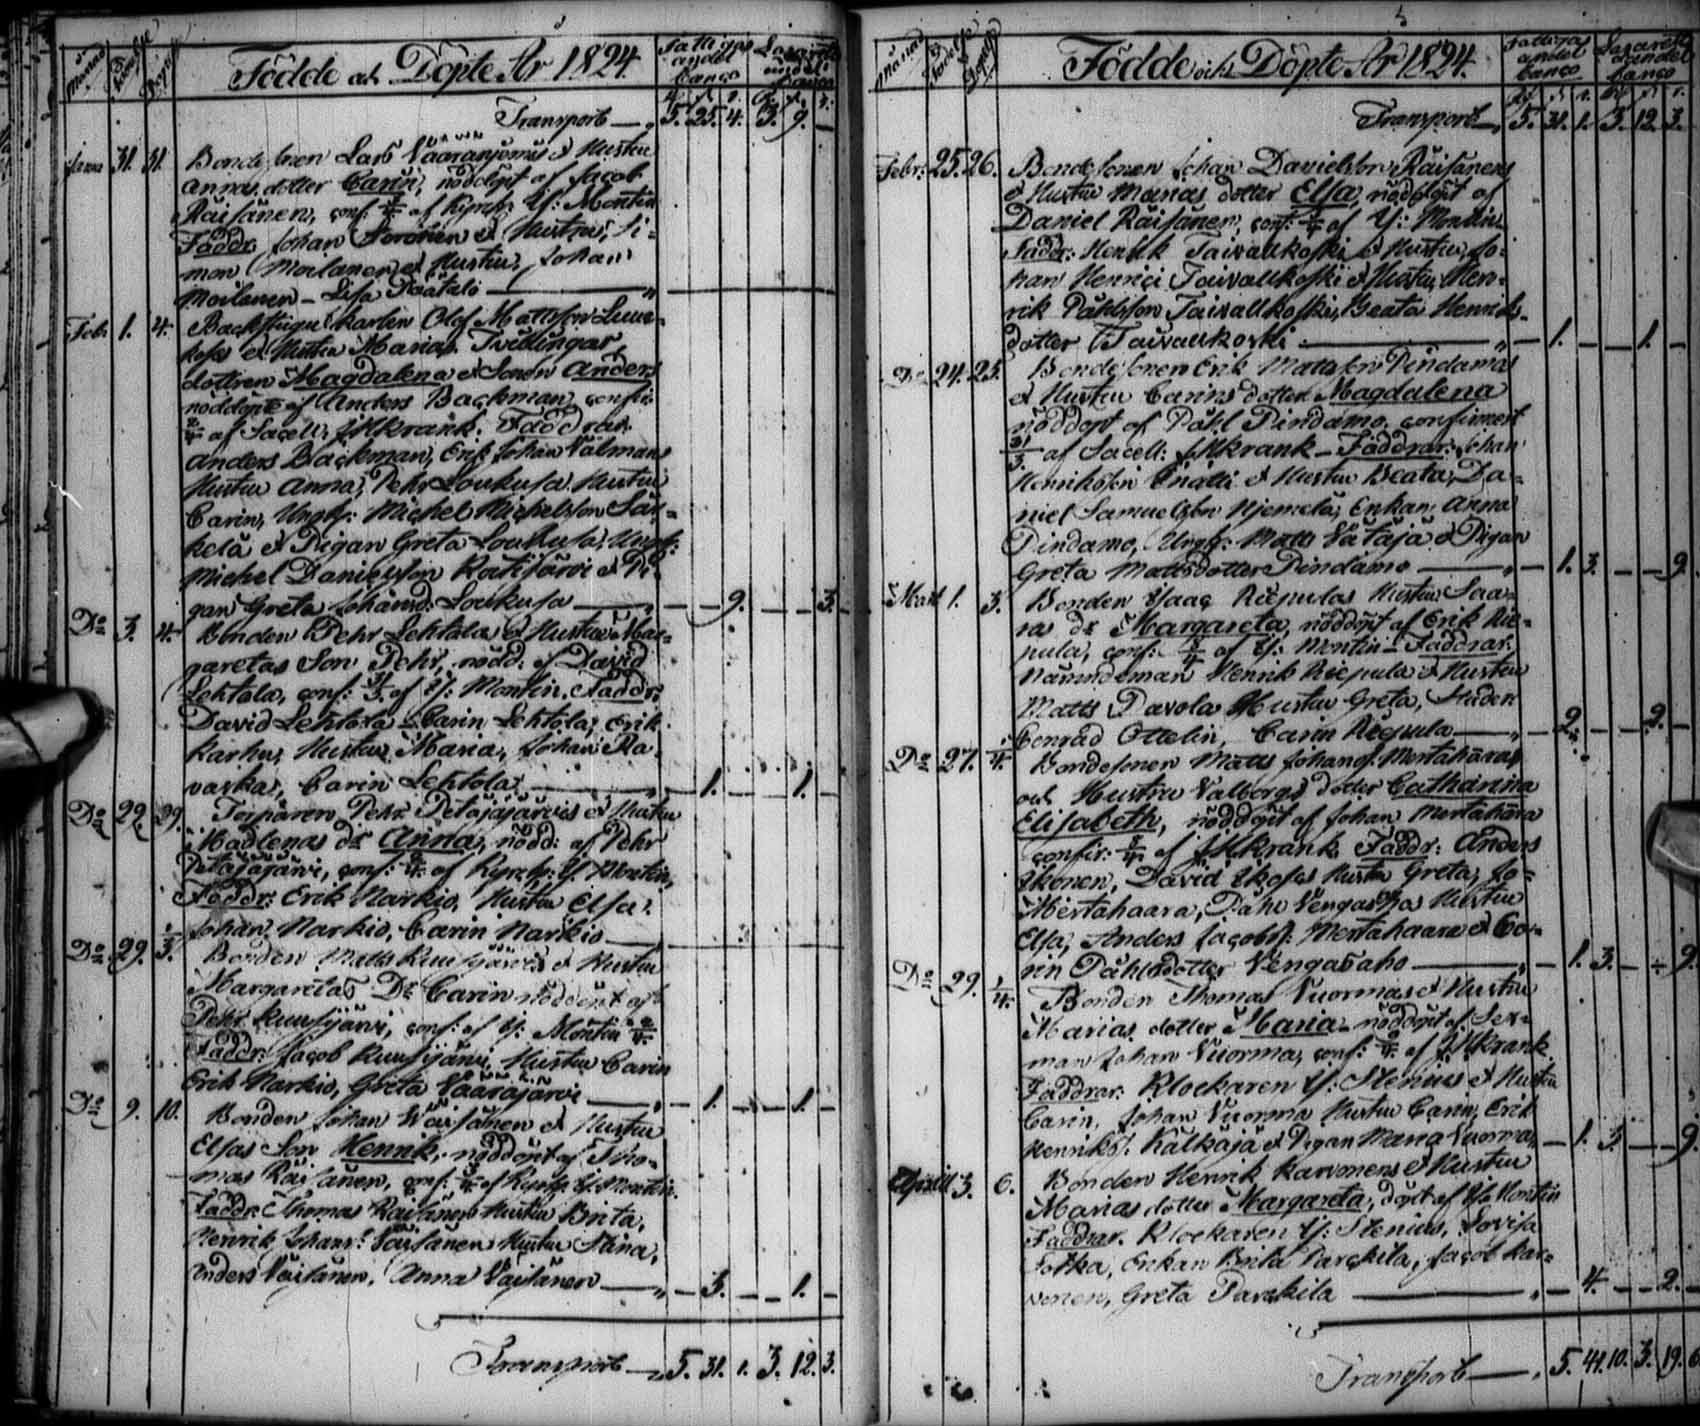 Månad Födelse Dopets Födde och Döpte År 1824. Fattigas andel banco Lazarets andel banco
Transport — 5. 25. 4. 3. 9. —
Janu 31. 31. Bondesonen Lars Vääränjomis et Hustru
Annas dotter Carin, nöddöpt af Jacob
Räisänen, conf: af Kyrkh: Y: Montin
Faddr: Johan Soronen et Hustru, Si-
mon Moilanen et Hustru, Johan
Moilanen — Lisa Päätalo
Feb. 1. 4. Backstugukarlen Olof Mattsson Luu-
kofs et Hustru Marias Tvillingar,
dottren Magdalena et Sonen Anders
nöddöpte af Anders Backman, confir:
2/4 af Sacell: JMkrank. Faddrar.
Anders Backman, Erik Johan Välmans
Hustru Anna, Pehr Loukusa Hustru
Carin, Ungk: Michel Michelsson Sär-
kelä et Pigan Greta Loukusa, Ungk:
Michel Danielsson Kötijärvi et Pi-
gan Greta Johansd: Loukusa — 9. — 3.
Do 3. 4. Bonden Pehr Lehtola et Hustru Mar-
garetas Son Pehr, nödd: af David
Lehtola, conf: af Y: Montin. Faddr:
David Lehtola — Carin Lehtola, Erik
Karhu, Hustru Maria, Johan Ra-
vaska, Carin Lehtola — 1. — 1. —
Do 29. 29. Torparen Pehr Petäjäjärvis et Hustru
Madlenas dr Anna, nödd: af Pehr
Petäjäjärvi, conf: af Kyrkh: Y: Montin,
Faddr: Erik Narkio, Hustru Elsa,
Johan Narkio, Carin Narkio
Do 29. 1/3. Bonden Matts Kuusijärvis et Hustru
Margaretas Dr Carin nöddöpt af
Pehr Kuusijärvi, conf: af Y: Montin
Faddr: Jacob Kuusijärvi, Hustru Carin
Erik Narkio, Greta Vääräjärvi — 1. — 1. —
Do 9. 10. Bonden Johan Väisänen et Hustru
Elsas Son Henrik, nöddöpt af Tho-
mas Räisänen, conf: af Kyrkh: Y: Montin.
Faddr: Thomas Räisänen Hustru Brita,
Henrik Johans: Väisänen Hustru Stina,
Anders Väisänen, Anna Väisänen — 3. — 1. —
Transport — 5. 31. 1. 3. 12. 3.
Månad Födelse Dopets Födde och Döpte År 1824. Fattigas andel banco Lazarets andel banco
Transport — 5. 31. 1. 3. 12. 3.
Febr: 25. 26. Bondesonen Johan Danielsson Räisänens
et Hustru Marias dotter Elsa, nöddöpt af
Daniel Räisänen, conf: af Y: Montin
Faddr: Henrik Taivalkoski et Hustru, Jo-
han Henrici Taivalkoski et Hustru, Hen-
rik Påhlsson Taivalkoski, Beata Henriks-
dotter Taivalkoski — 1. — 1. —
Do 24. 25. Bondesonen Erik Mattsson Pindamas
et Hustru Carins dotter Magdalena
nöddöpt af Påhl Pindamo, confirmert
31/3. af Sacell: JMkrank — Faddrar: Johan
Henriksson et Hustru Beata, Da-
niel Samuelsson Njemelä, Enkan Anna
Pindamo, Ungk: Matts Vätäjä et Pigan
Greta Mattsdotter Pindamo — 1. 3. — 9.
Mart 1. 3. Bonden Isaac Riepulas Hustru Saa-
ra dr Margareta, nöddöpt af Erik Rie-
pula, conf: af Y: Montin — Faddrar.
Nämndeman Henrik Riepula et Hustru
Matts Pavola Hustru Greta, Studen
Conrad Ottelin, Carin Riepula — 2. — 2. —
Do 27. 1/4. Bondesonen Matts Johans: Mertahäras
och Hustru Valborgs dotter Catharina
Elisabeth, nöddöpt af Johan Mertahära
confir: af JMkrank. Faddr: Anders
Ikonen, David Hustru Greta, Jo-
Mertahaara, Påhl Vengasahos Hustru
Elsa, Anders Jacobs: Mertahaara et Ca-
rin Påhlsdotter Vengasaho — 1. 3. — 9.
Do 29. 1/4. Bonden Thomas Vuormas et Hustru
Marias dotter Maria nöddöpt af Sex-
man Johan Vuorma, conf: af JMkrank
Faddrar: Klockaren Y: Stenius et Hustru
Carin, Johan Vuorma Hustru Carin, Erik
Henriks: Kälkäjä et Pigan Maria Vuorma, — 1. 3. — 9.
April 3. 6. Bonden Henrik Karvonens et Hustru
Marias dotter Margareta, döpt af Y: Montin
Faddrar. Klockaren Y: Stenius, Lovisa
Enkan Brita Parckila, Jacob Kar-
vonen, Greta Parckila — 4. — 2. —
Transport — 5. 41. 10. 3. 19. 6